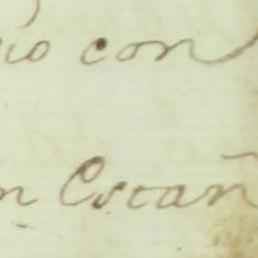 io con
n Estañ